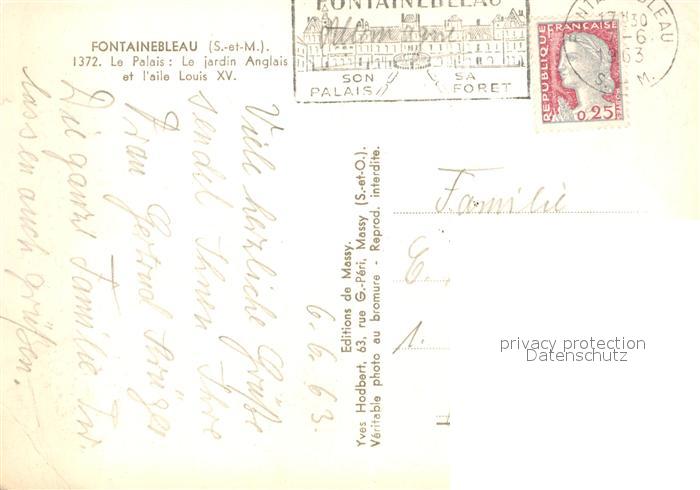 FONTAINEBLEAU (S.-et-M.).
1372. Le Palais : Le jardin Anglais
et l'aile Louis XV.
FONTAINEBLEAU
SON PALAIS
SA FORET
FONTAINEBLEAU
17 H 30
-6
1963
S. M.
REPUBLIQUE FRANÇAISE
0,25
6.6.63.
Viele herzliche Grüße
sendet Ihnen Ihre
Frau Gertrud
Die ganze Familie
lassen auch grüßen.
Editions de Massy.
Yves Hodbert, 63, rue G.-Péri, Massy (S.-et-O.).
Véritable photo au bromure - Reprod. interdite.
Familie
E.
1.
privacy protection
Datenschutz